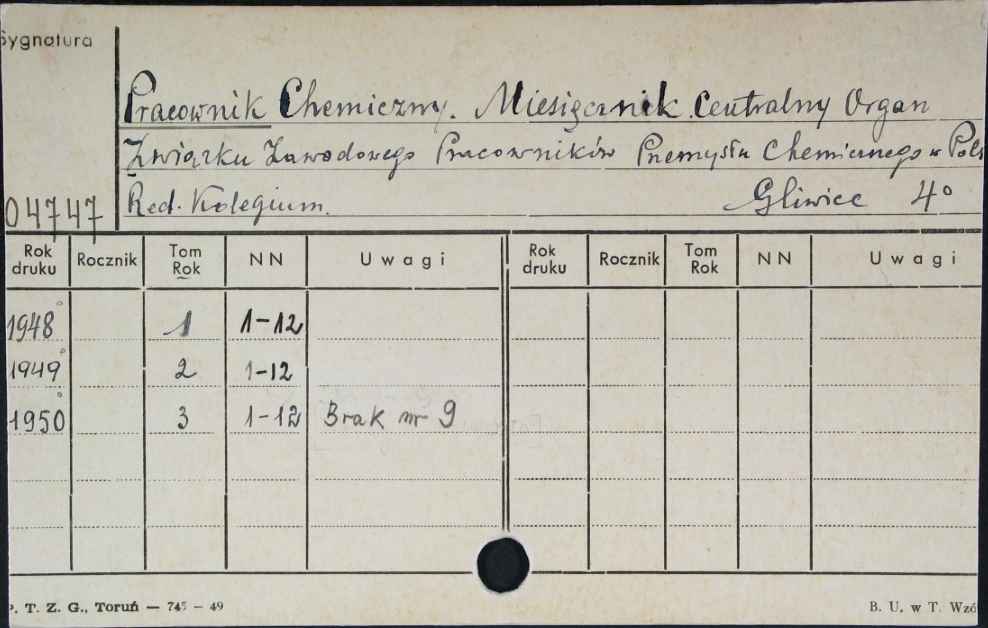 Sygnatura
Pracownik Chemiczny. Miesięcznik. Centralny Organ
Związku Zawodowego Pracowników Przemysłu Chemicznego w Pols
Red. Kolegium. Gliwice 4°
04747
Rok druku Rocznik Tom Rok NN Uwagi Rok druku Rocznik Tom Rok NN Uwagi
1948 1 1-12
1949 2 1-12
1950 3 1-12 Brak nr 9
. T. Z. G., Toruń — 745 — 49 B. U. w T. Wzó